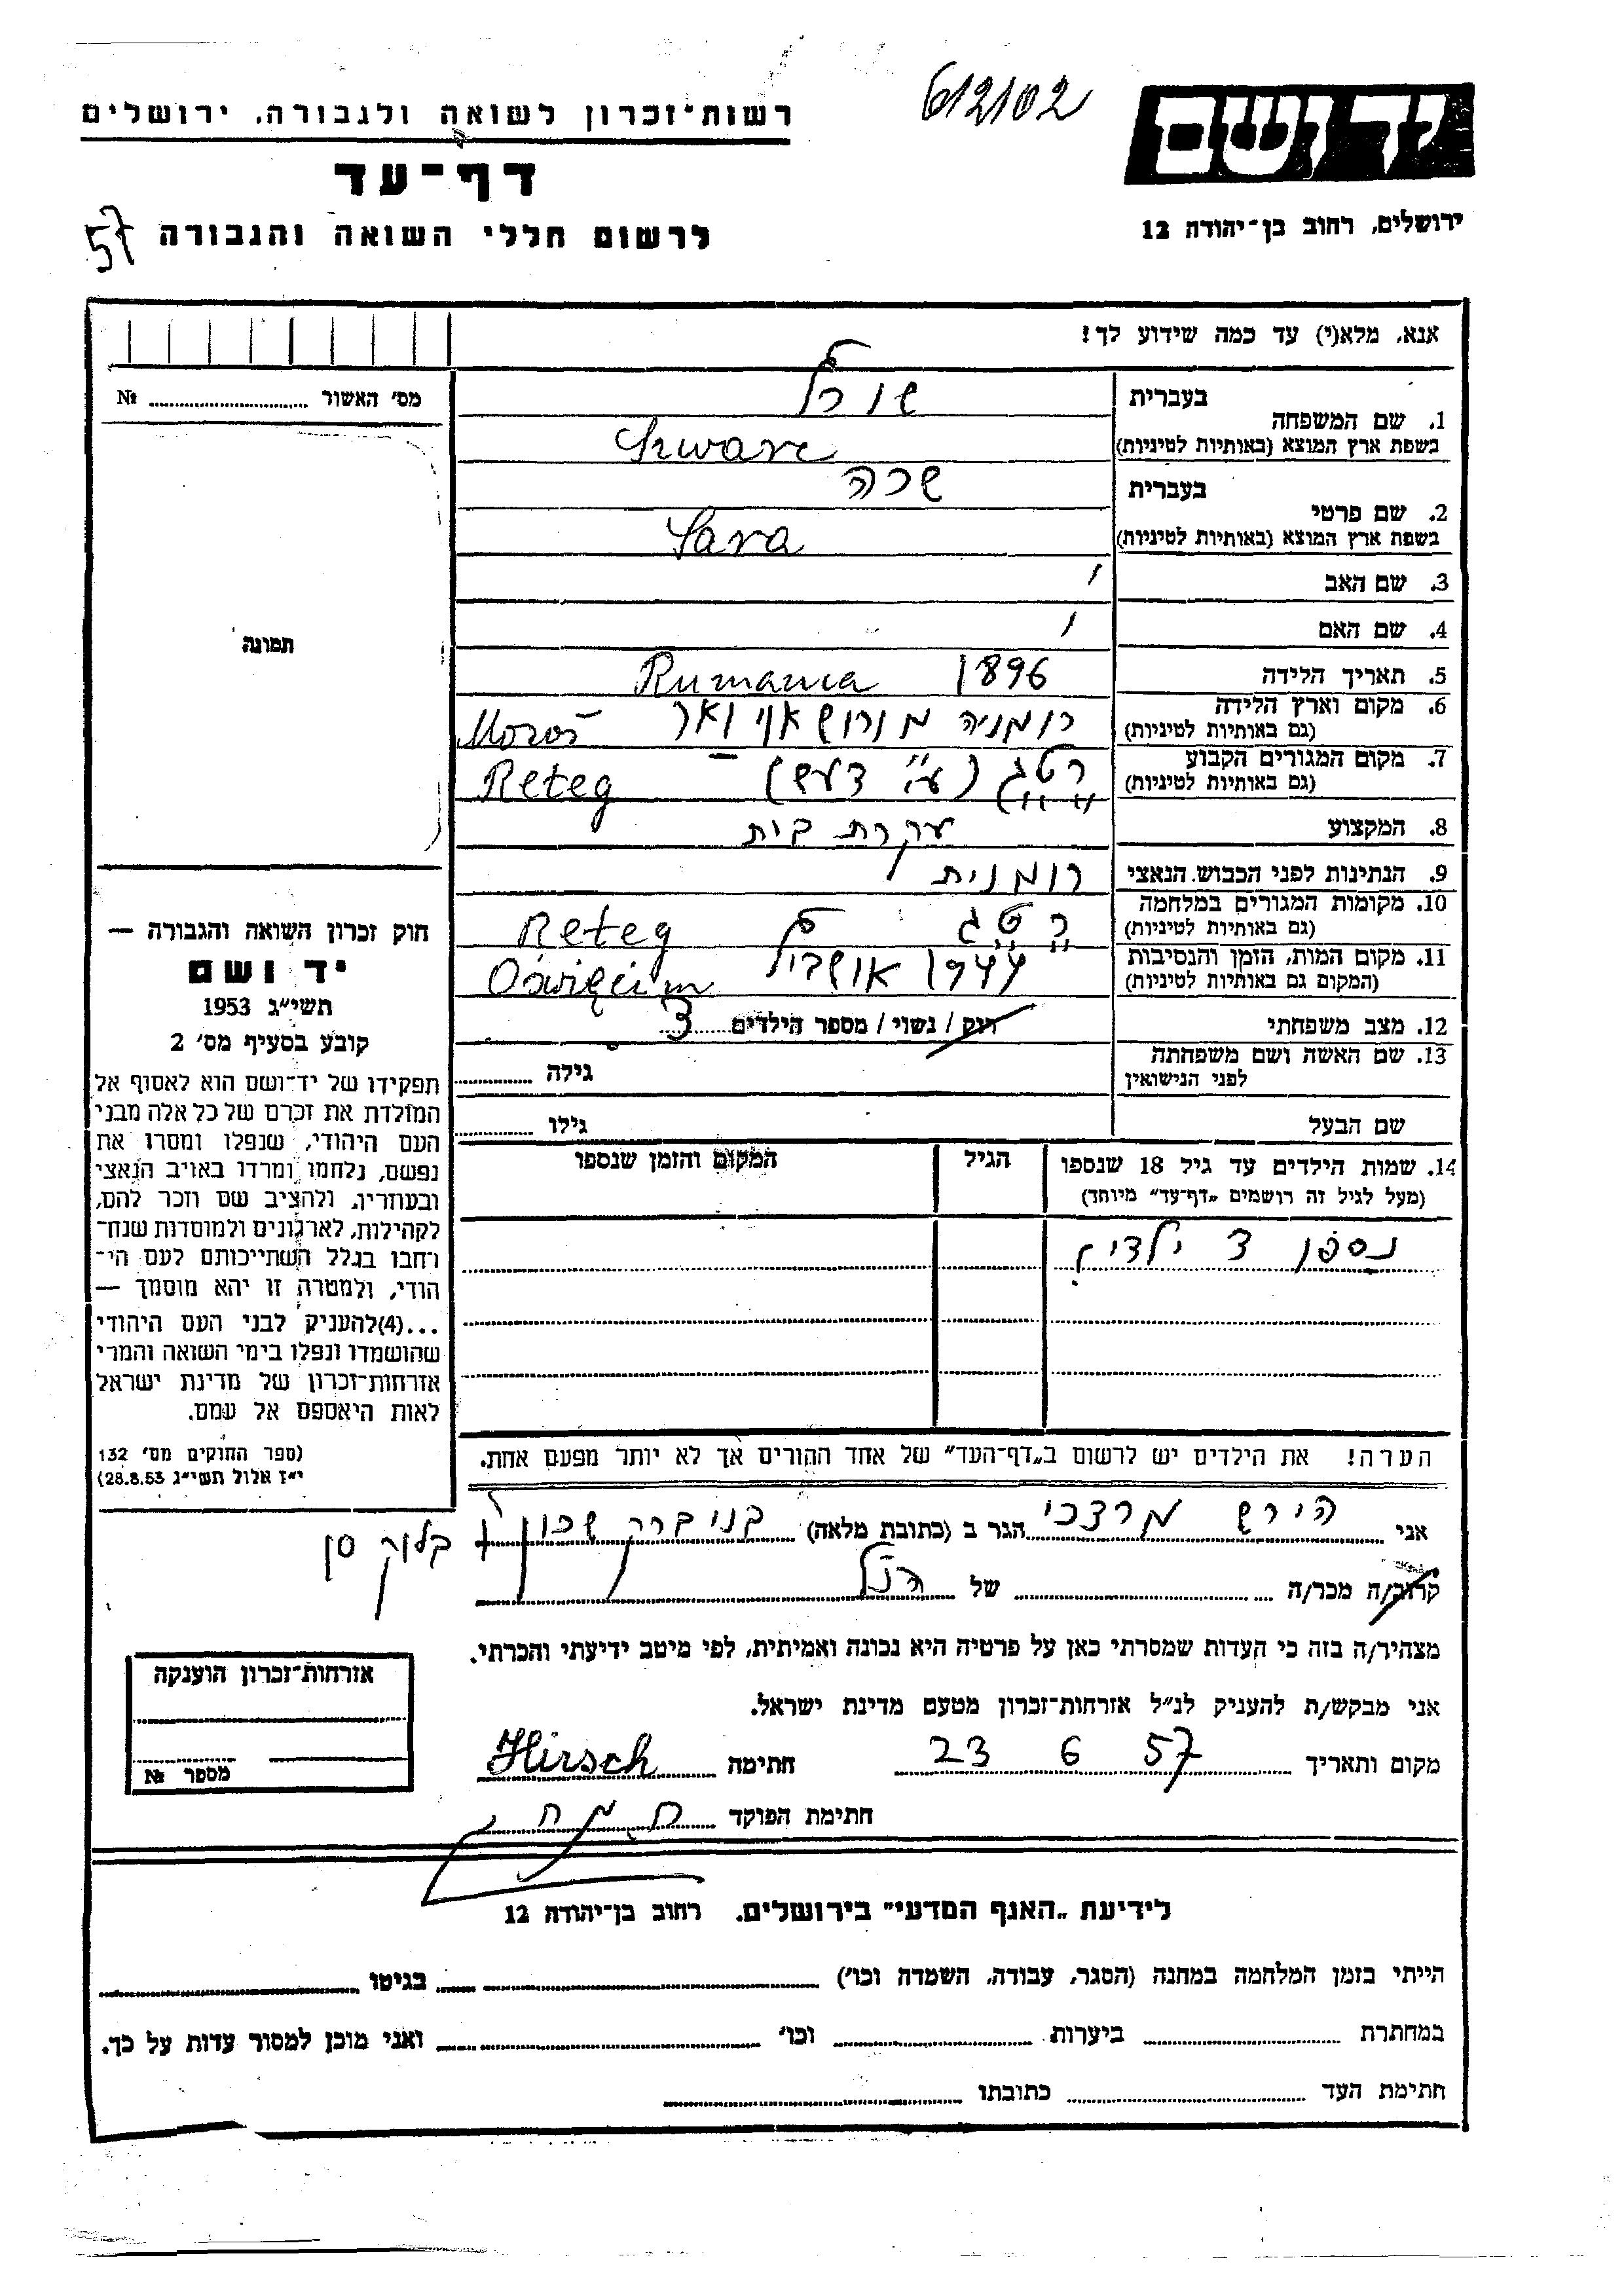 612102
יד ושם
רשות־זכרון לשואה ולגבורה, ירושלים
דף־עד
לרשום חללי השואה והגבורה
57
ירושלים, רחוב בן־יהודה 12
אנא, מלא(י) עד כמה שידוע לך!
מס׳ האשור № 
תמונה
1. שם המשפחה
בעברית
בשפת ארץ המוצא (באותיות לטיניות)
Szwarc
2. שם פרטי
בעברית שרה
בשפת ארץ המוצא (באותיות לטיניות) Sara
3. שם האב
4. שם האם
5. תאריך הלידה 1896 Rumania
6. מקום וארץ הלידה רומניה
(גם באותיות לטיניות) Moros
7. מקום המגורים הקבוע רטג (ע״י דעש)
(גם באותיות לטיניות) Reteg
8. המקצוע עקרת בית
9. הנתינות לפני הכבוש הנאצי רומנית
10. מקומות המגורים במלחמה רטג
(גם באותיות לטיניות) Reteg
11. מקום המות, הזמן והנסיבות 1944
(המקום גם באותיות לטיניות) Oświęcim
12. מצב משפחתי רוק / נשוי / מספר הילדים 3
13. שם האשה ושם משפחתה
לפני הנישואין גילה
שם הבעל גילו
14. שמות הילדים עד גיל 18 שנספו
(מעל לגיל זה רושמים „דף־עד״ מיוחד)
הגיל
המקום והזמן שנספו
נספו 3 ילדים
חוק זכרון השואה והגבורה —
יד ושם
תשי״ג 1953
קובע בסעיף מס׳ 2
תפקידו של יד־ושם הוא לאסוף אל
המולדת את זכרם של כל אלה מבני
העם היהודי, שנפלו ומסרו את
נפשם, נלחמו ומרדו באויב הנאצי
ובעוזריו, ולהציב שם וזכר להם,
לקהילות, לארגונים ולמוסדות שנח־
רחבו בגלל השתייכותם לעם הי־
הודי, ולמטרה זו יהא מוסמך —
...(4)להעניק לבני העם היהודי
שהושמדו ונפלו בימי השואה והמרי
אזרחות־זכרון של מדינת ישראל
לאות היאספם אל עמם.
(ספר החוקים מס׳ 132
י״ז אלול תשי״ג 28.8.53)
הערה! את הילדים יש לרשום ב„דף־העד״ של אחד ההורים אך לא יותר מפעם אחת.
אני הירש מרדכי הגר ב (כתובת מלאה) בני ברק שכון ו בלוק
קרוב/ה מכר/ה של הנ״ל
מצהיר/ה בזה כי העדות שמסרתי כאן על פרטיה היא נכונה ואמיתית, לפי מיטב ידיעתי והכרתי.
אני מבקש/ת להעניק לנ״ל אזרחות־זכרון מטעם מדינת ישראל.
מקום ותאריך 23 6 57 חתימה Hirsch
חתימת הפוקד
אזרחות־זכרון הוענקה
מספר №
לידיעת „האגף המדעי״ בירושלים. רחוב בן־יהודה 12
הייתי בזמן המלחמה במחנה (הסגר, עבודה, השמדה וכו׳) בגיטו
במחתרת ביערות וכו׳ ואני מוכן למסור עדות על כך.
חתימת העד כתובתו